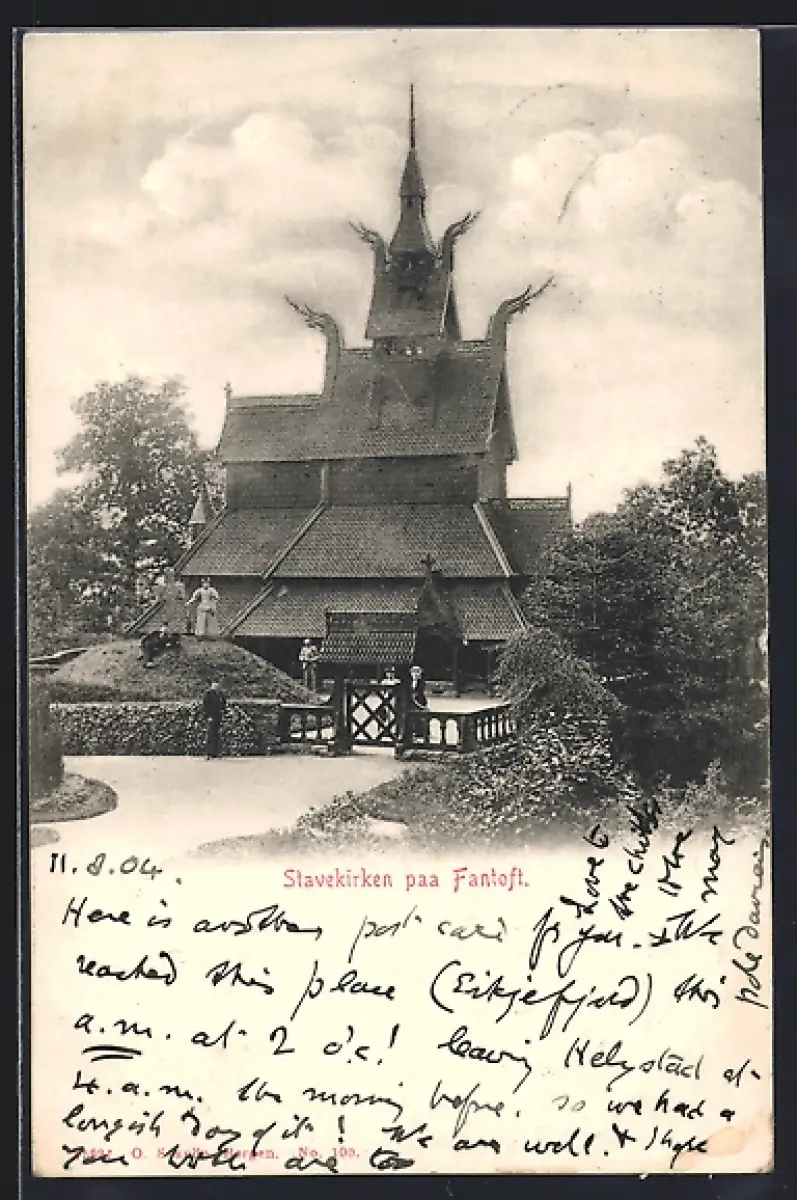 Stavekirken paa Fantoft.
11.8.04.
Here is another post card for you. We
reached this place (Eikjefjord) this
a.m. at 2 o'c! leaving at
4. a.m. the morning before. so we had a
longish day of it! We are well. & I hope
you both are too
O. Bergen. No. 100.
Love to
the chicks